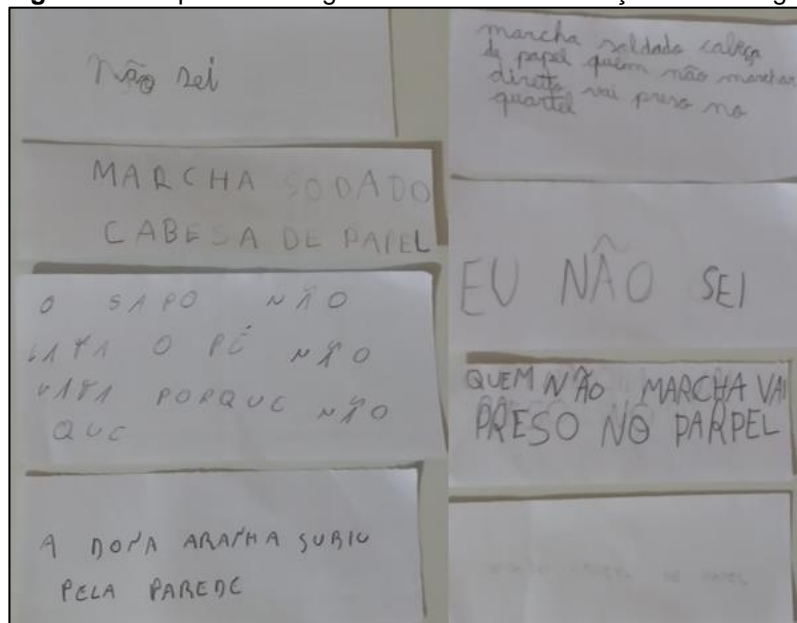 Não sei
MARCHA SODADO
CABESA DE PAPEL
O SAPO NÃO
LAVA O PÉ NÃO
LAVA PORQUE NÃO
QUE
A DONA ARANHA SUBIU
PELA PAREDE
marcha soldado cabeça
de papel quem não marchar
direito vai preso no
quartel
EU NÃO SEI
QUEM NÃO MARCHA VAI
PRESO NO PARPEL
DE PAPEL